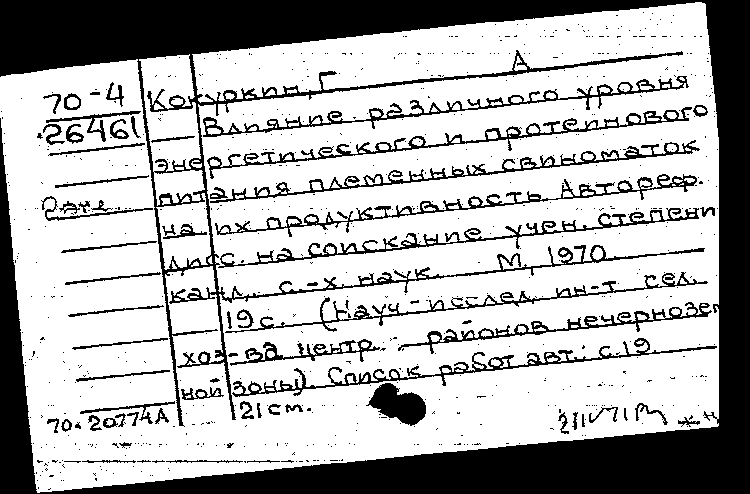 А
70-4 Кокуркин, Г
26461 Влияние различного уровня
энергетического и протеинового
питания племенных свиноматок
на их продуктивность. Автореф.
дисс. на соискание учен. степени
канд. с.-х. наук. М., 1970.
19 с. (Науч.-исслед. ин-т сел.
хоз-ва центр. районов нечернозем
ной зоны). Список работ авт.: с.19.
21 см.
70-20774А